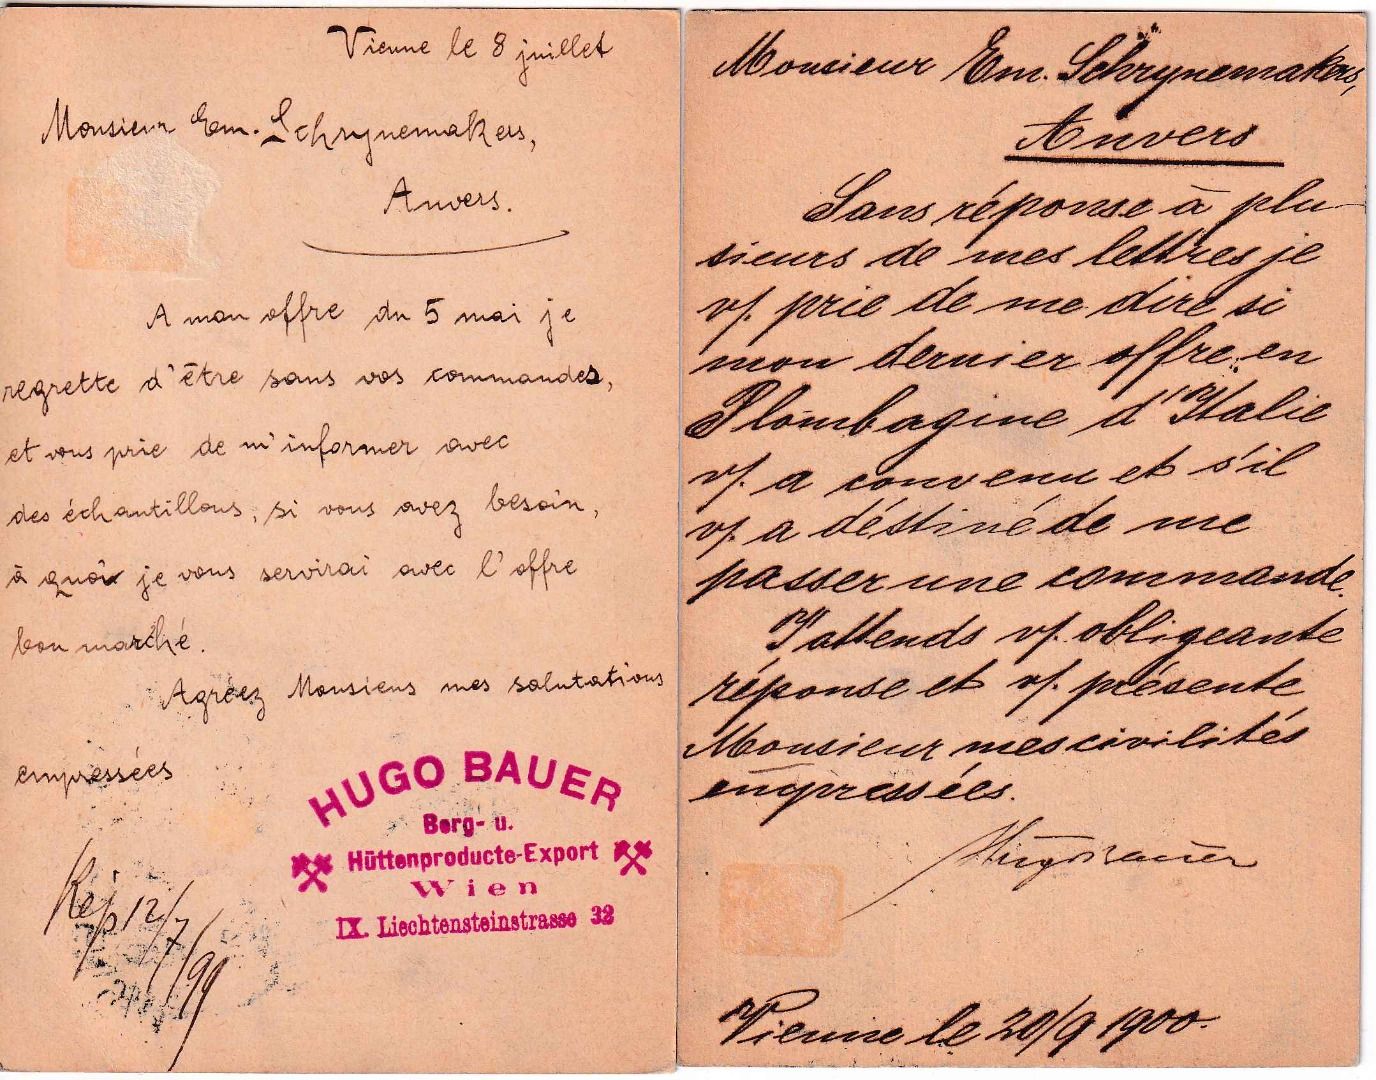 Vienne le 8 juillet
Monsieur Em. Schrynemakers,
Anvers.
A mon offre du 5 mai je
regrette d'être sans vos commandes,
et vous prie de m'informer avec
des échantillons, si vous avez besoin,
à quoi je vous servirai avec l'offre
bon marché.
Agréez Monsieur mes salutations
empressées
HUGO BAUER
Berg- u.
Hüttenproducte-Export
Wien
IX. Liechtensteinstrasse 32
Rép 12/7/99
Monsieur Em. Schrynemakers,
Anvers
Sans réponse à plu
sieurs de mes lettres je
v/. prie de me dire si
mon dernier offre en
Plombagine d'Italie
v/. a convenu et s'il
v/. a déstiné de me
passer une commande.
J'attends v/. obligeante
réponse et v/. présente
Monsieur mes civilités
empressées.
Hugo Bauer
Vienne le 20/9 1900.